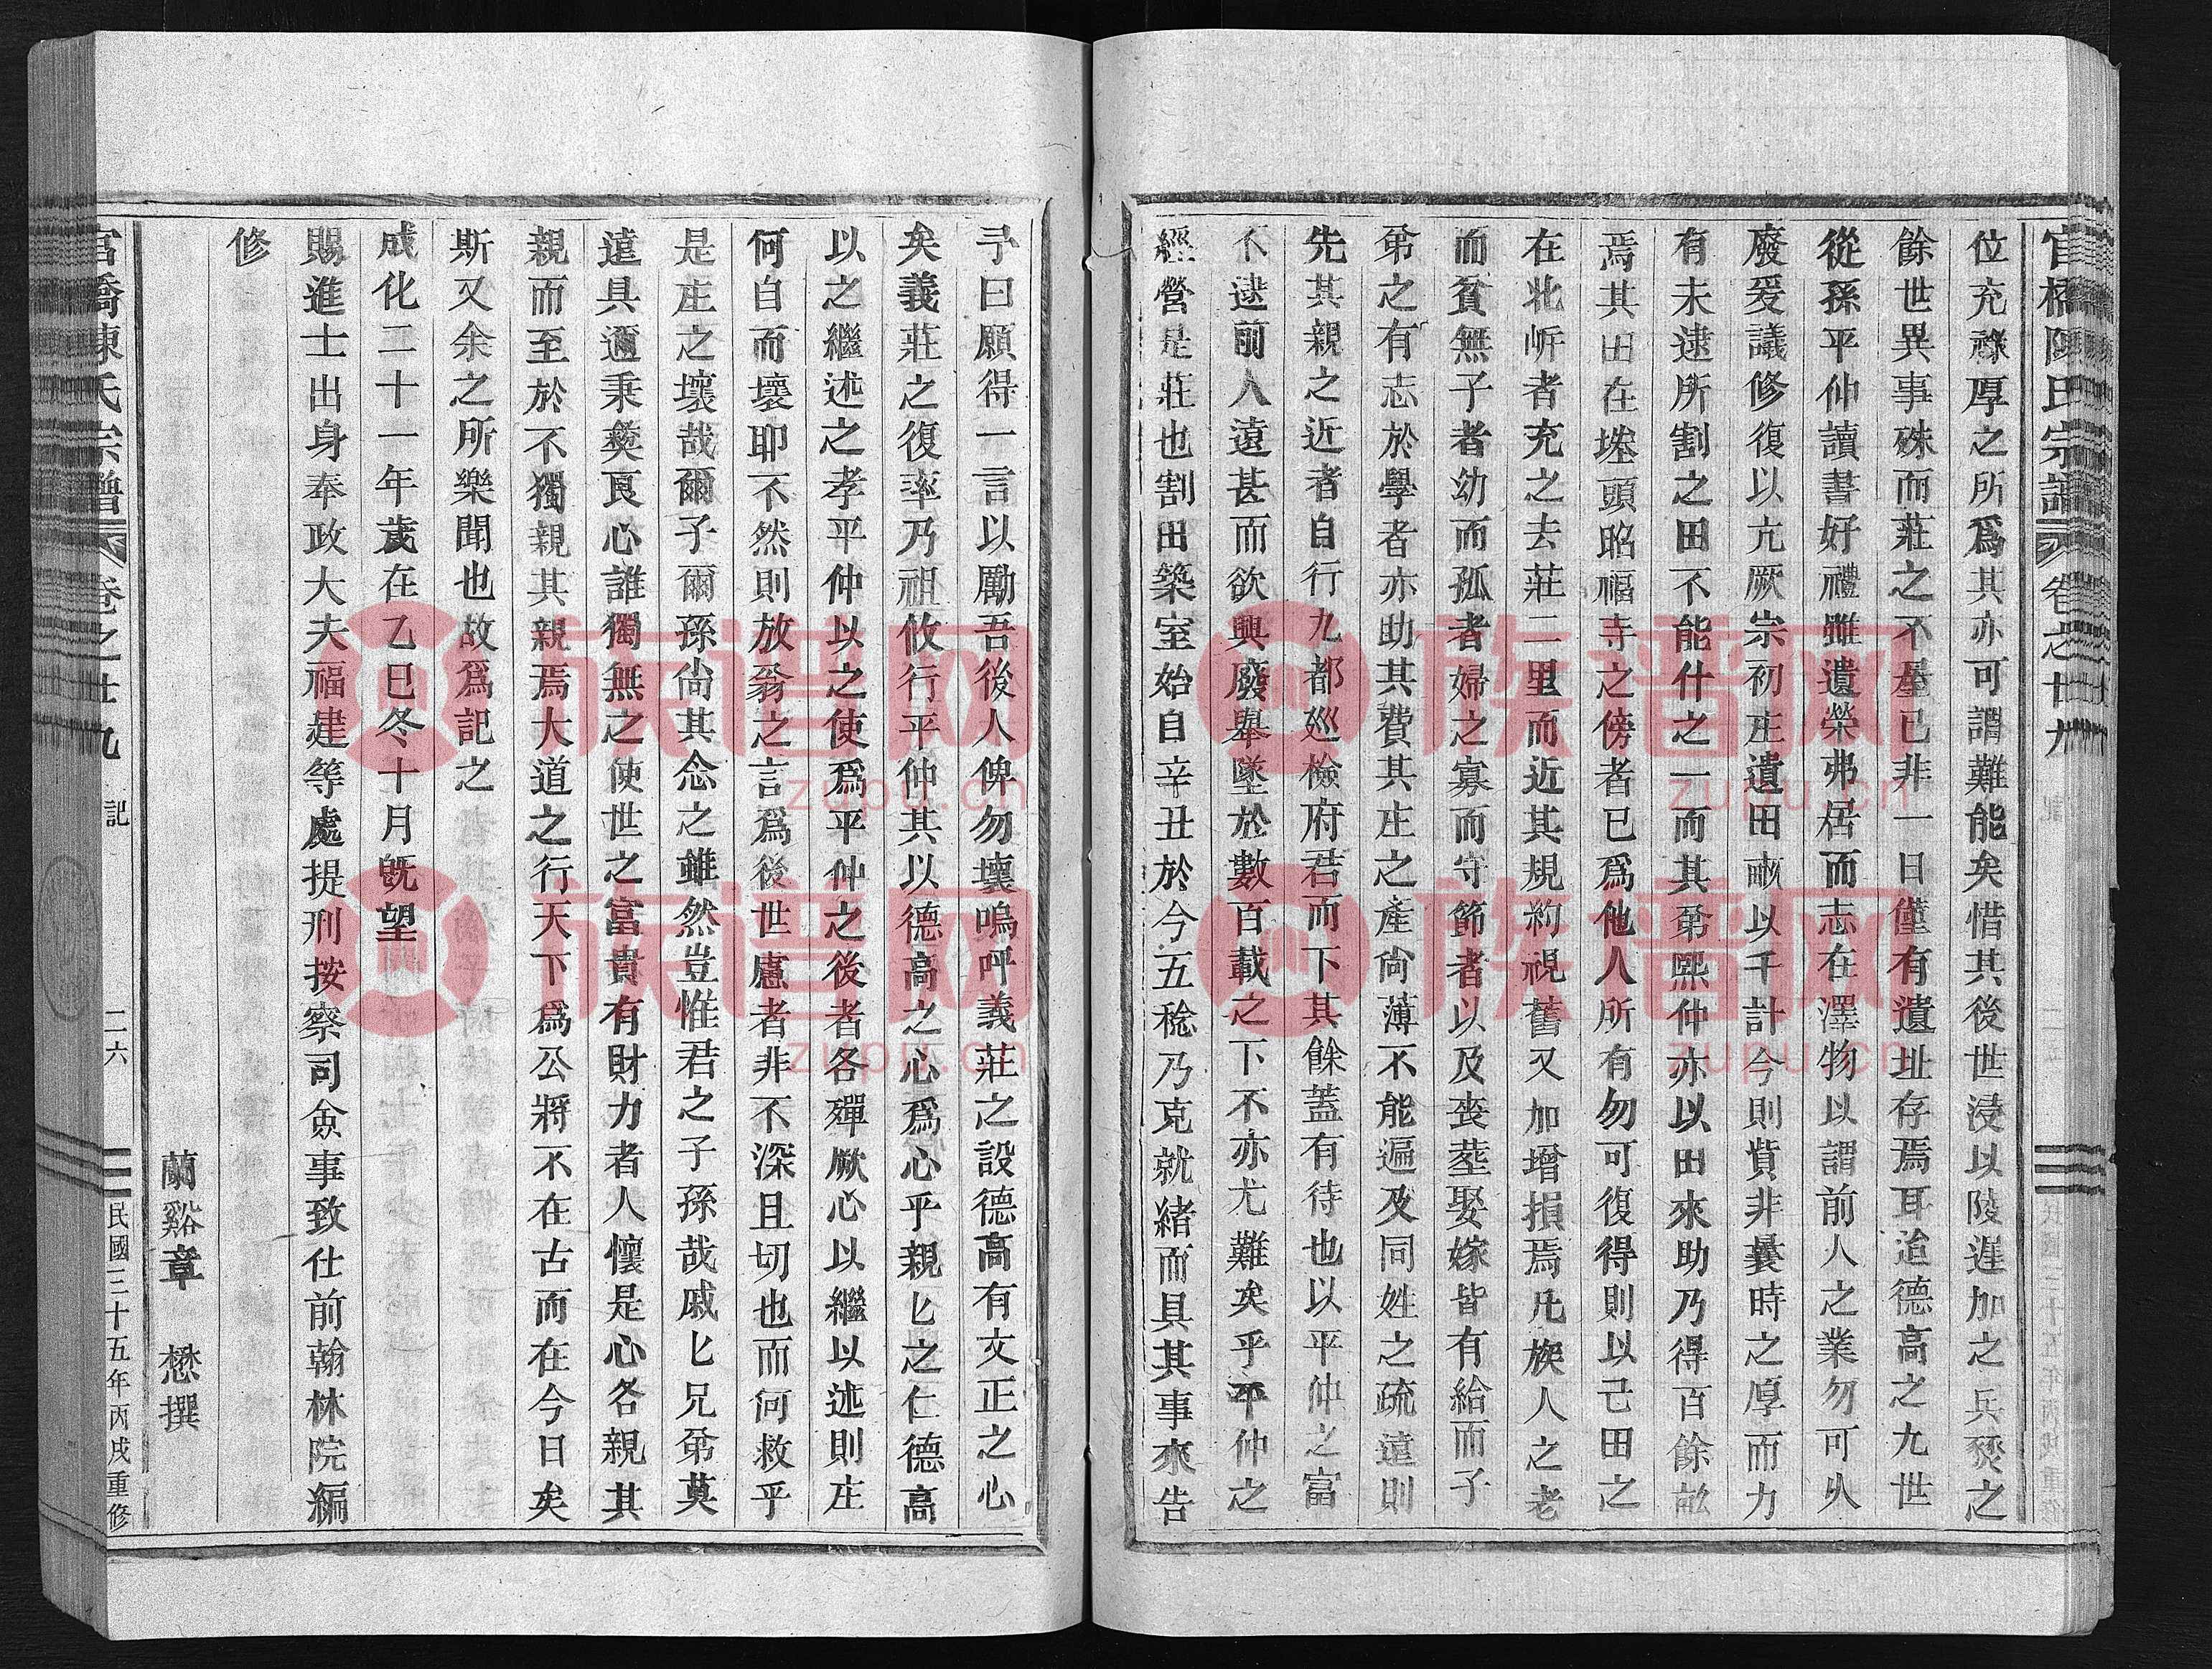 官橋陳氏宗譜 卷之廿九
位充祿厚之所爲其亦可謂難能矣惜其後世浸以陵遲加之兵燹之
餘世異事殊而莊之不屋已非一日僅有遺址存焉耳迨德高之九世
從孫平仲讀書好禮雖遺榮弗居而志在澤物以謂前人之業勿可久
廢爰議修復以亢厥宗初庄遺田畝以千計今則貲非曩時之厚而力
有未逮所割之田不能什之一而其弟熙仲亦以田來助乃得百餘畝
焉其田在塔頭昭福寺之傍者已爲他人所有勿可復得則以己田之
在北岍者充之去莊二里而近其規約視舊又加增損焉凡族人之老
而貧無子者幼而孤者婦之寡而守節者以及喪塟娶嫁皆有給而子
弟之有志於學者亦助其費其庄之產尙薄不能遍及同姓之疏遠則
先其親之近者自行九都巡檢府君而下其餘蓋有待也以平仲之富
不逮前人遠甚而欲興廢舉墜於數百載之下不亦尤難矣乎平仲之
經營是莊也割田築室始自辛丑於今五稔乃克就緒而具其事來告
予曰願得一言以勵吾後人俾勿壞嗚呼義莊之設德高有文正之心
矣義莊之復率乃祖攸行平仲其以德高之心爲心乎親匕之仁德高
以之繼述之孝平仲以之使爲平仲之後者各殫厥心以繼以述則庄
何自而壞耶不然則放翁之言爲後世慮者非不深且切也而何救乎
是庄之壞哉爾子爾孫尙其念之雖然豈惟君之子孫哉戚匕兄弟莫
遠具邇秉彝良心誰獨無之使世之富貴有財力者人懷是心各親其
親而至於不獨親其親焉大道之行天下爲公將不在古而在今日矣
斯又余之所樂聞也故爲記之
成化二十一年歲在乙巳冬十月旣望
賜進士出身奉政大夫福建等處提刑按察司僉事致仕前翰林院編
修
蘭谿章 懋撰
官橋陳氏宗譜 卷之廿九 記 二六 民國三十五年丙戌重修
族谱网
zupu.cn
族谱网
zupu.cn
族谱网
zupu.cn
族谱网
zupu.cn